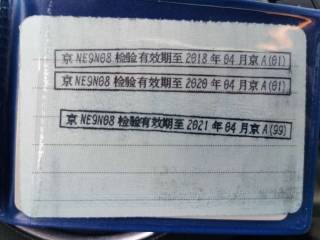 京 NE9N08 检验有效期至 2018 年 04 月京 A(01)
京 NE9N08 检验有效期至 2020 年 04 月京 A(01)
京 NE9N08 检验有效期至 2021 年 04 月京 A(99)